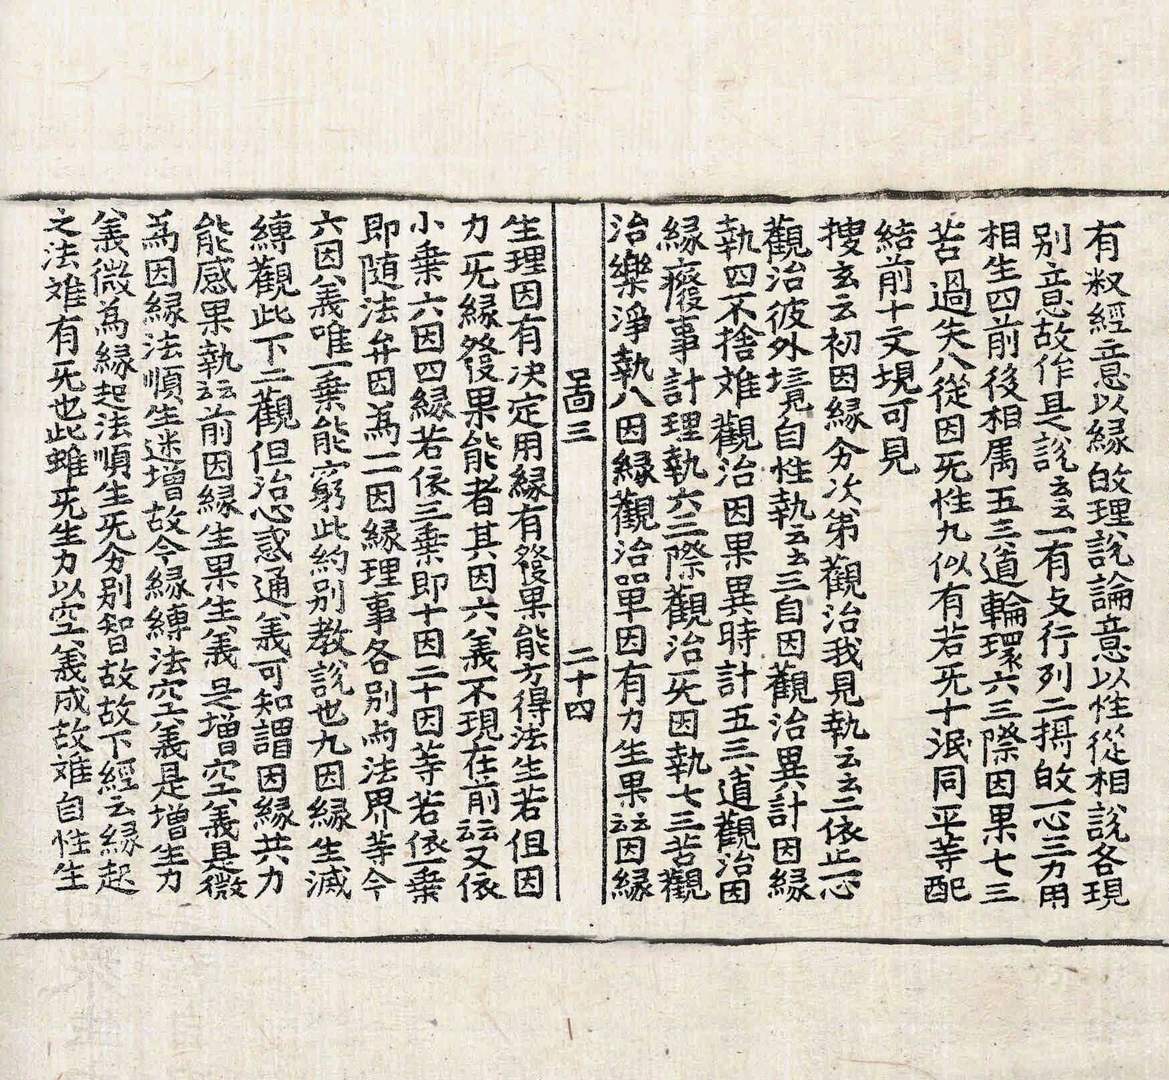 有叙經意以縁故理說論意以性從相說各現
別意故作且說云云一有攴行列二攝故一心三力用
相生四前後相属五三道輪環六三際因果七三
苦過失八從因旡性九似有若旡十泯同平等配
結前十文現可見
搜玄云初因縁分次第觀治我見執云云二依止一心
觀治彼外境自性執云云三自因觀治異計因縁
執四不捨难觀治因果異時計五三道觀治因
縁癈事計理執六三際觀治旡因執七三苦觀
治樂淨執八因縁觀治單因有力生果云云因縁
啚三 二十四
生理因有决定用縁有發果能方得法生若但因
力旡縁發果能者其因六義不現在前云云又依
小乗六因四縁若依三乗即十因二十因等若依一乗
即随法弁因為一一因縁理事各別与法界等今
六因義唯一乗能窮此約別教說也九因縁生滅
縛觀此下二觀但治心惑通義可知謂因縁共力
能感果執云云前因縁生果生義是増空義是微
為因縁法順生迷増故今縁縛法空義是増生力
義微為縁起法順生旡分別智故故下經云縁起
之法难有旡也此雖旡生力以空義成故难自性生